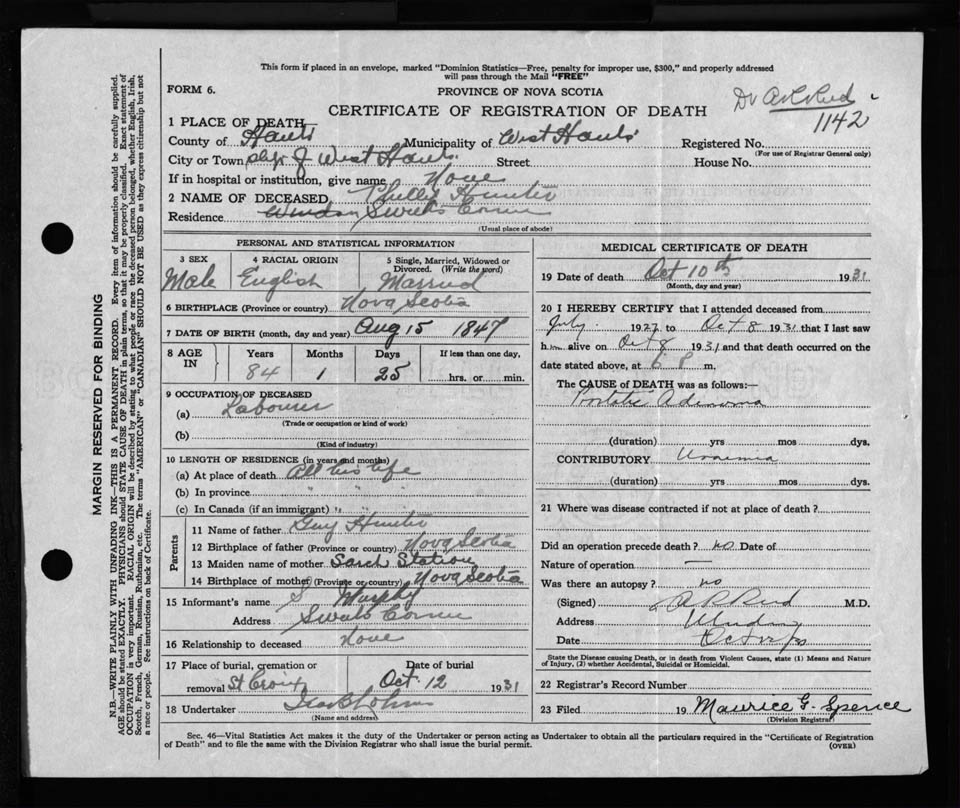 This form if placed in an envelope, marked "Dominion Statistics—Free, penalty for improper use, $300," and properly addressed
will pass through the Mail "FREE"
FORM 6.
PROVINCE OF NOVA SCOTIA
CERTIFICATE OF REGISTRATION OF DEATH
1142
1 PLACE OF DEATH
County of Hants Municipality of West Hants Registered No.
(For use of Registrar General only)
City or Town West Hants. Street House No.
If in hospital or institution, give name None
2 NAME OF DECEASED Hunter
Residence Windsor Sweets Corner
(Usual place of abode)
PERSONAL AND STATISTICAL INFORMATION
3 SEX 4 RACIAL ORIGIN 5 Single, Married, Widowed or Divorced. (Write the word)
Male English Married
6 BIRTHPLACE (Province or country) Nova Scotia
7 DATE OF BIRTH (month, day and year) Aug 15 1847
8 AGE IN Years Months Days If less than one day,
84 1 25 hrs. or min.
9 OCCUPATION OF DECEASED
(a) Labourer
(Trade or occupation or kind of work)
(b)
(Kind of industry)
10 LENGTH OF RESIDENCE (in years and months)
(a) At place of death All his life
(b) In province " " "
(c) In Canada (if an immigrant) " " "
Parents
11 Name of father Guy Hunter
12 Birthplace of father (Province or country) Nova Scotia
13 Maiden name of mother Sarah Station
14 Birthplace of mother (Province or country) Nova Scotia
15 Informant's name S Murphy
Address Sweets Corner
16 Relationship to deceased None
17 Place of burial, cremation or removal St Croix Date of burial Oct. 12 1931
18 Undertaker
(Name and address)
MEDICAL CERTIFICATE OF DEATH
19 Date of death Oct 10th 1931
(Month, day and year)
20 I HEREBY CERTIFY that I attended deceased from
July 1927 to Oct 8 1931 that I last saw
him alive on Oct 8 1931 and that death occurred on the
date stated above, at P m.
The CAUSE of DEATH was as follows:—
Prostatic Adenoma
(duration) yrs mos dys.
CONTRIBUTORY Uraemia
(duration) yrs mos dys.
21 Where was disease contracted if not at place of death?
Did an operation precede death? no Date of
Nature of operation —
Was there an autopsy? no
(Signed) A R Reid M.D.
Address Windsor
Date
State the Disease causing Death, or in death from Violent Causes, state (1) Means and Nature
of Injury, (2) whether Accidental, Suicidal or Homicidal.
22 Registrar's Record Number
23 Filed 19 Maurice G. Spence
(Division Registrar)
Sec. 46—Vital Statistics Act makes it the duty of the Undertaker or person acting as Undertaker to obtain all the particulars required in the "Certificate of Registration
of Death" and to file the same with the Division Registrar who shall issue the burial permit.
(OVER)
MARGIN RESERVED FOR BINDING
N.B.—WRITE PLAINLY WITH UNFADING INK—THIS IS A PERMANENT RECORD. Every item of information should be carefully supplied.
AGE should be stated EXACTLY. PHYSICIANS should STATE CAUSE OF DEATH in plain terms, so that it may be properly classified. Exact statement of
OCCUPATION is very important. RACIAL ORIGIN will be described by stating to what people or race the deceased person belonged, whether English, Irish,
Scotch, French, German, Russian, Ruthenian, etc. The terms "AMERICAN" or "CANADIAN" SHOULD NOT BE USED as they express citizenship but not
a race or people. See instructions on back of Certificate.